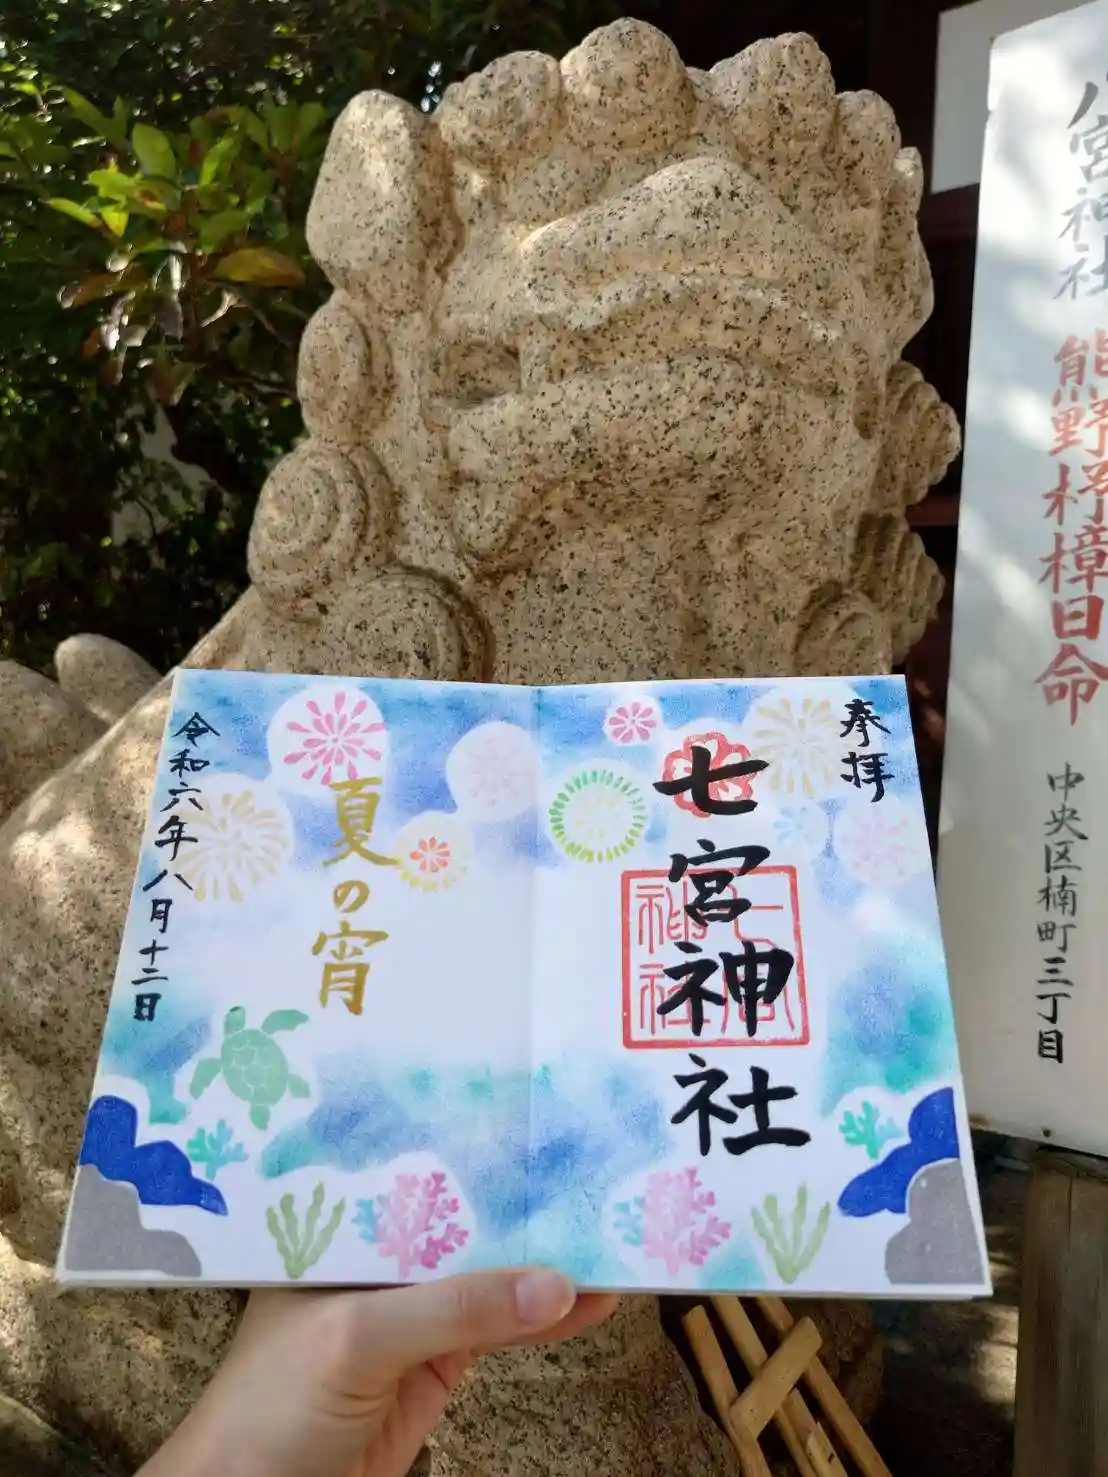 奉拝
七宮神社
夏の宵
令和六年八月十二日
八宮神社
熊野杼樟日命
中央区楠町三丁目